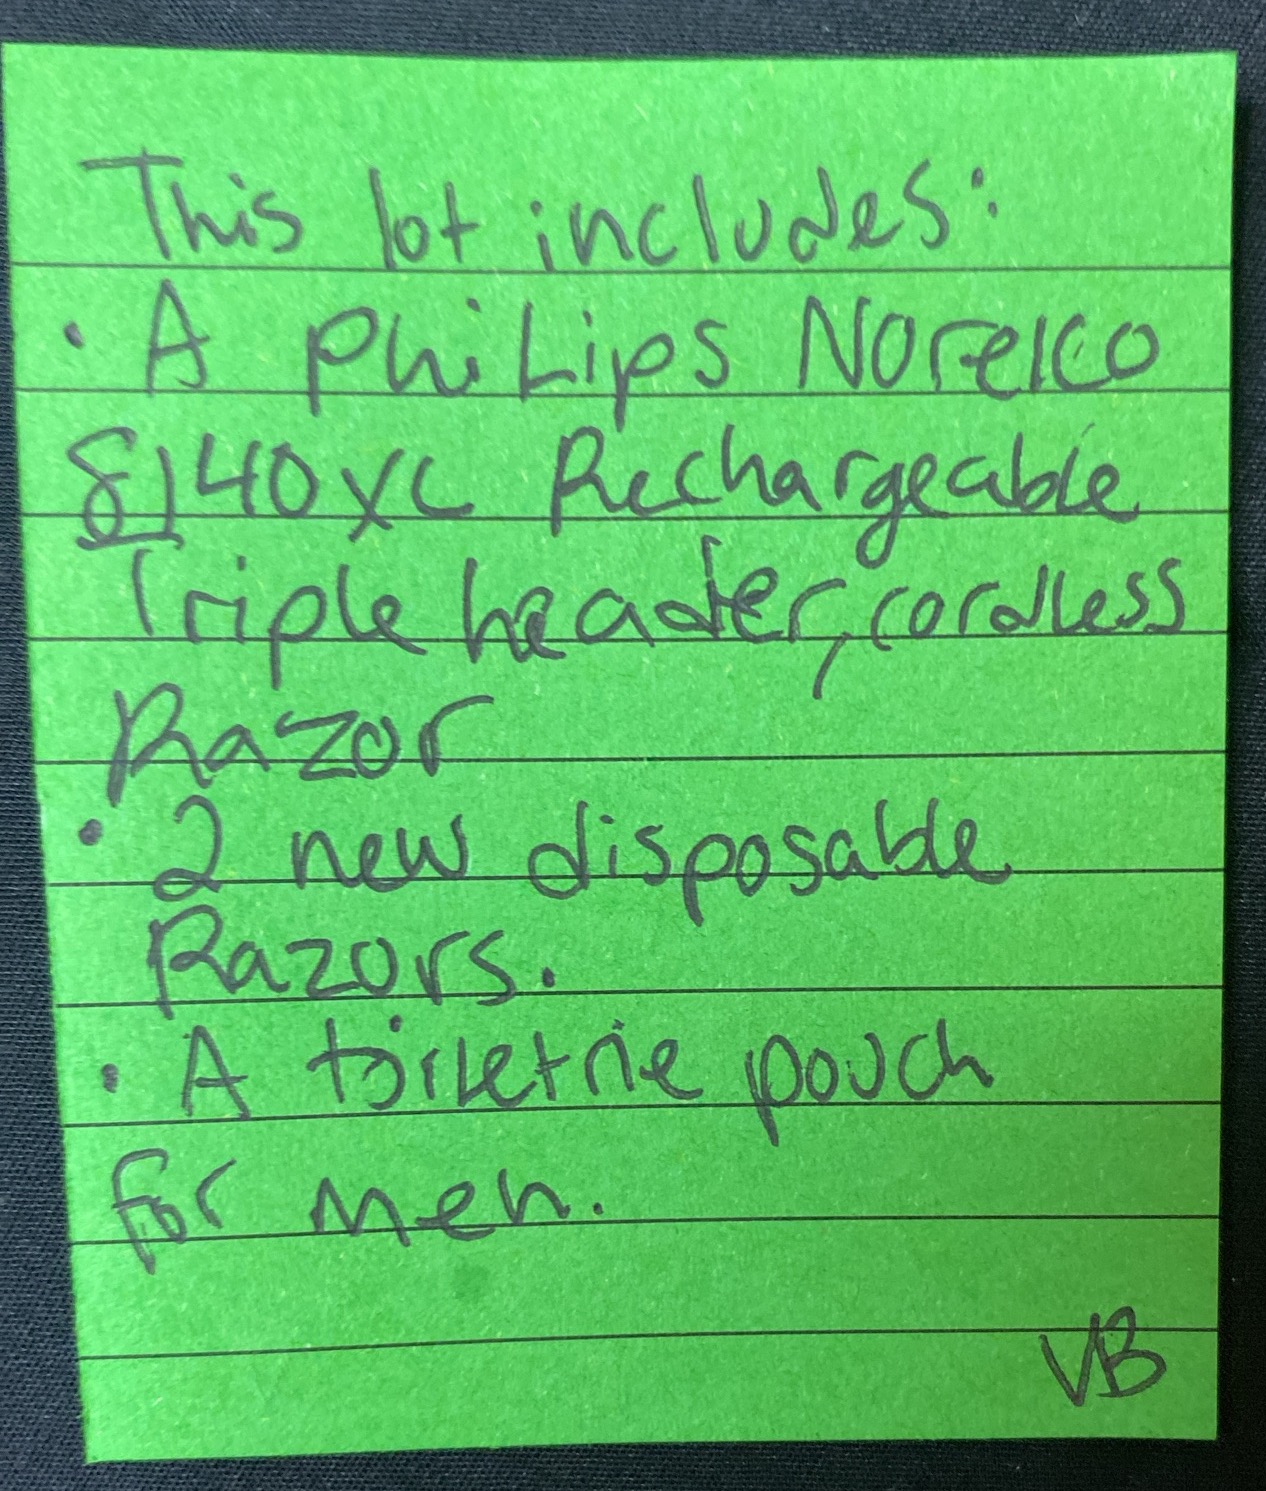 This lot includes:
• A PhiLips Norelco
8140XC Rechargeable
Triple header, cordless
Razor
• 2 new disposable
Razors.
• A toiletrie pouch
for men.
VB